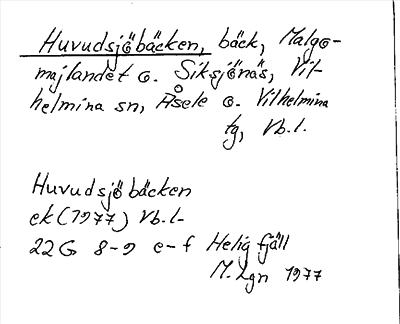 Huvudsjöbäcken, bäck, Malgo-
majlandet o. Siksjönäs, Vil-
helmina sn, Åsele o. Vilhelmina
tg, Vb.l.
Huvudsjöbäcken
ek (1977) Vb. l.
22G 8-9 e-f Helig fjäll
M. Lgn 1977